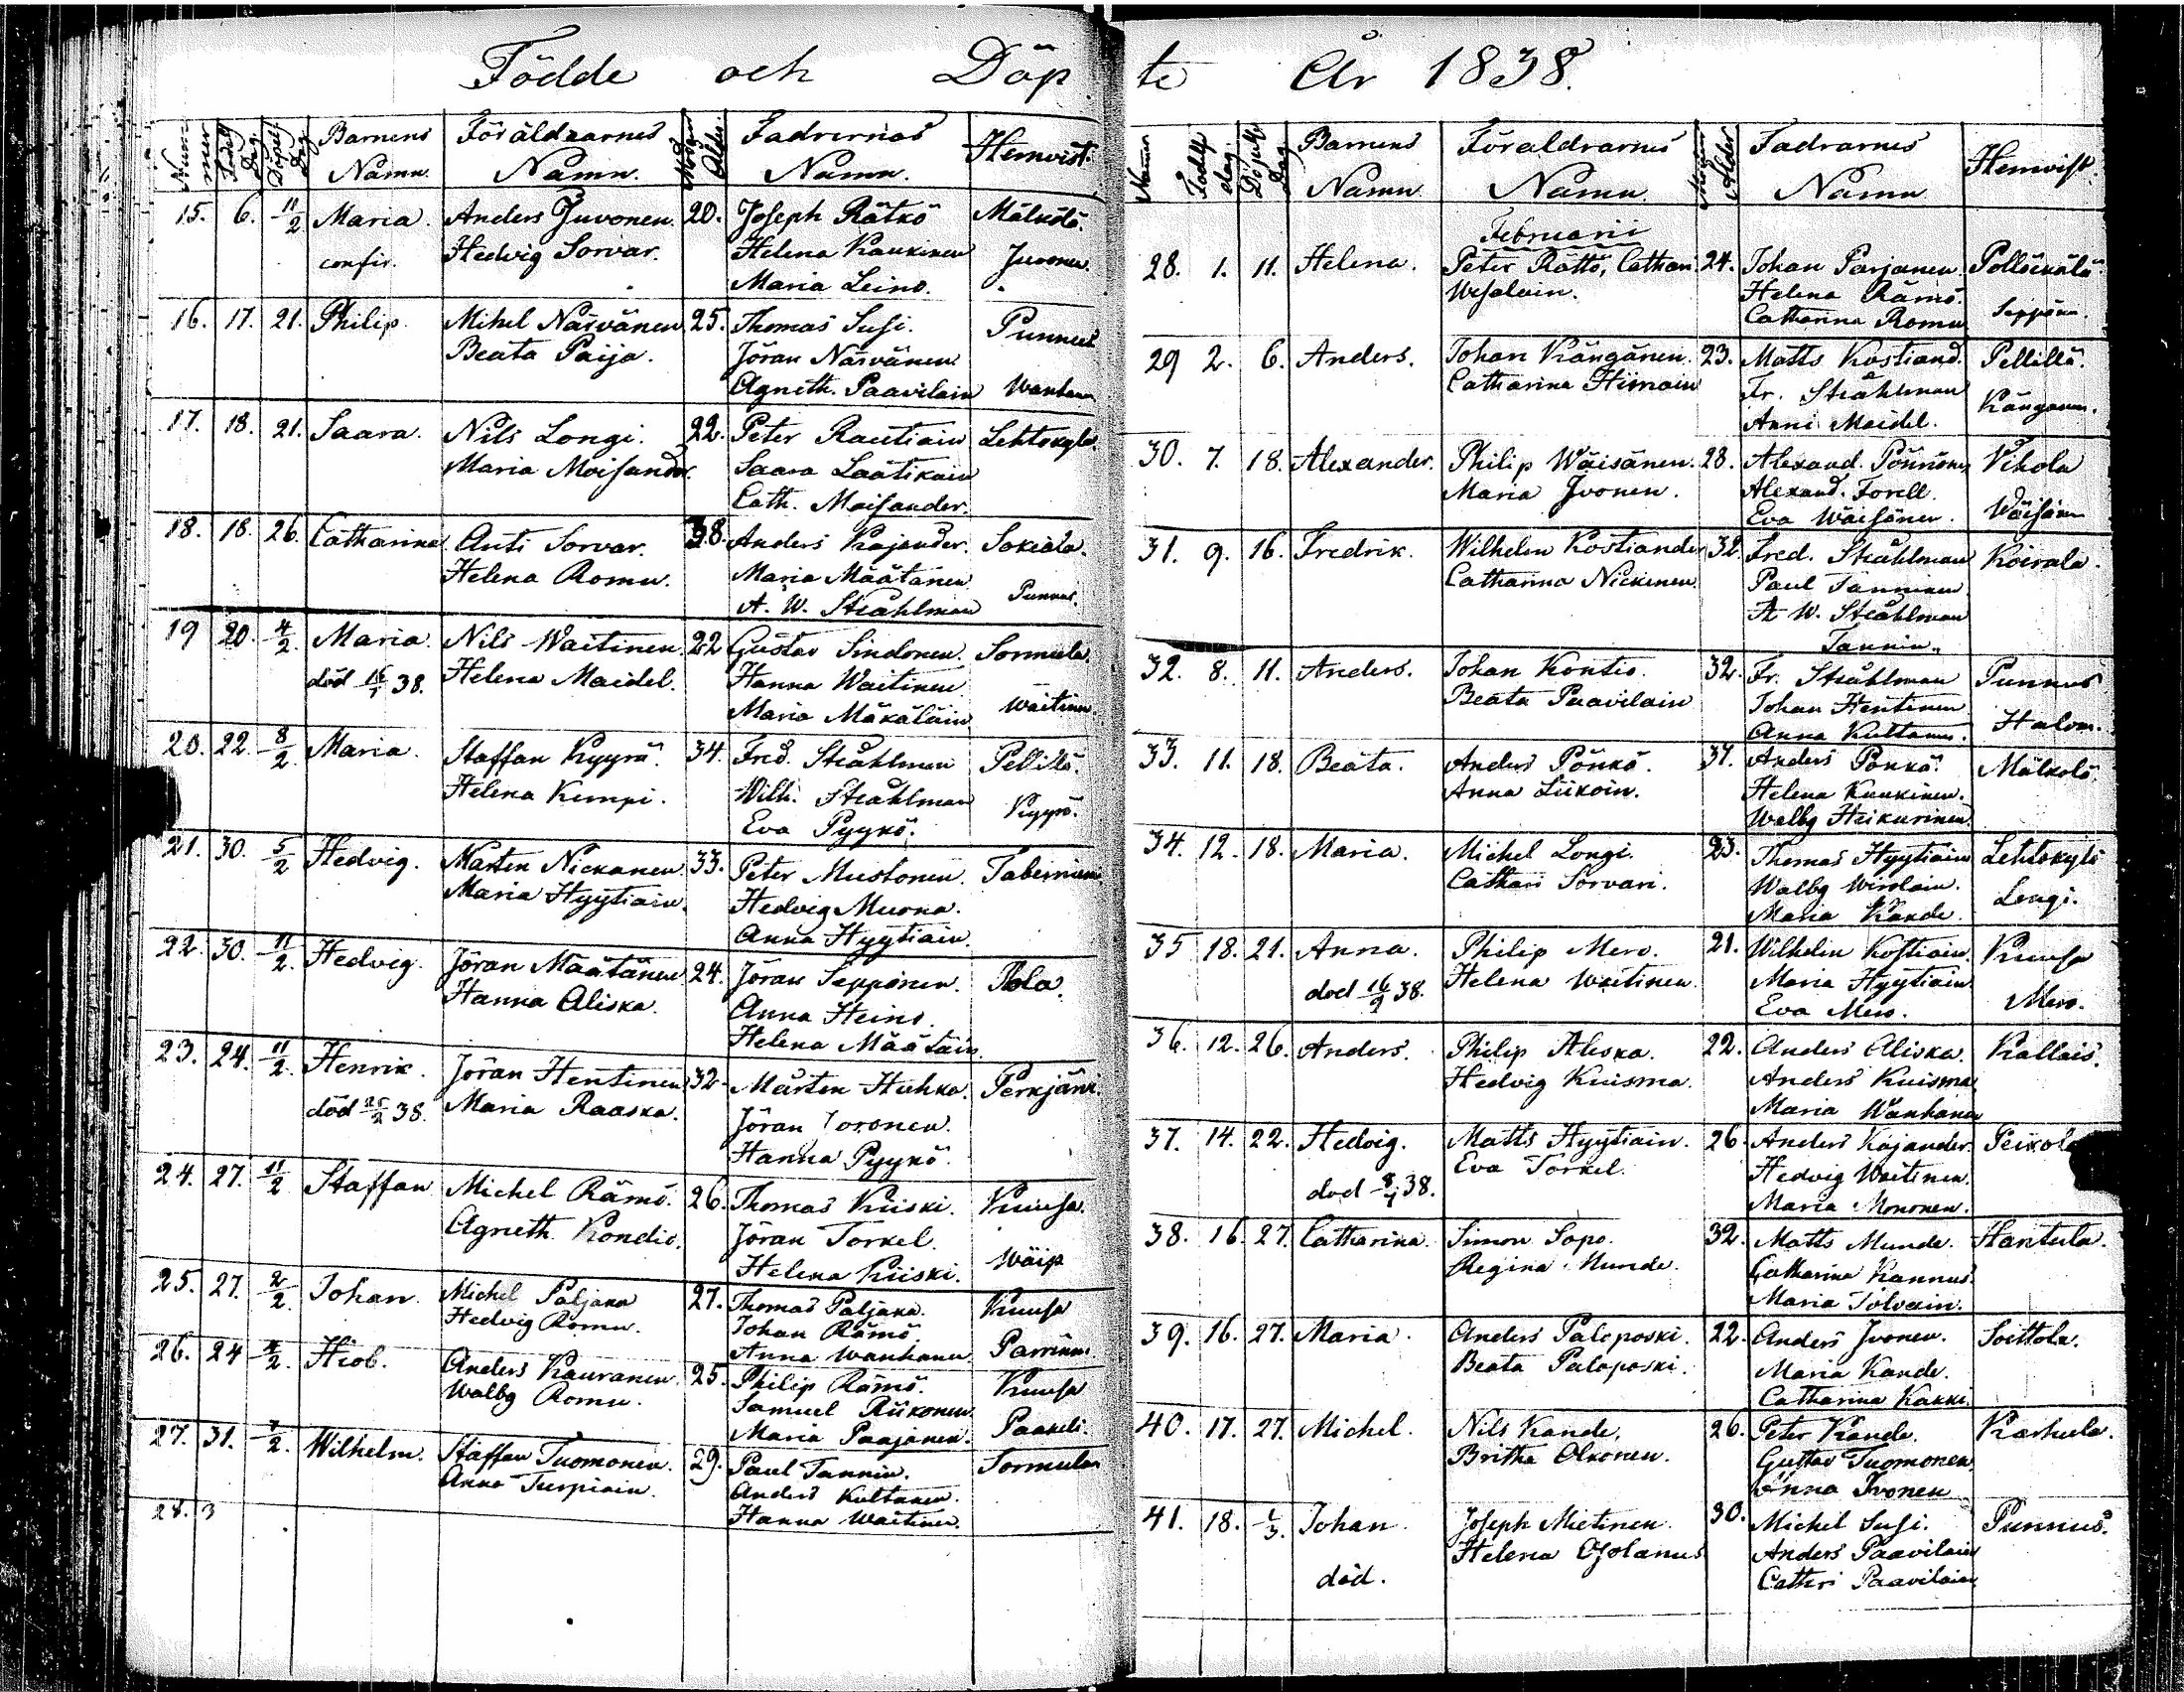 Födde och Döpte År 1838.
Nummer Födelse Dag Döpelse Dag Barnens Namn. Föräldrarnes Namn. Modrens Ålder. Fadrernas Namn. Hemvist.
15. 6. 11/2 Maria. Anders Juvonen. 20. Joseph Rätkö Mälkölä.
confir. Hedvig Sorvar. Helena Kaukinen Juvonen.
Maria Leino.
16. 17. 21. Philip. Mihel Närvänen 25. Thomas Susi. Punnus
Beata Paija. Jöran Närvänen
Agneth. Paavilain
17. 18. 21. Saara. Nils Longi. 22. Peter Rautiain Lehtokylä.
Maria Moisander. Saara Laatikain
Cath. Moisander.
18. 18. 26. Catharina Anti Sorvar. 38. Anders Kajander. Sokiala.
Helena Romu. Maria Määtänen Punnus.
A. W. Stråhlman
19 20. 4/2. Maria. Nils Waitinen. 22 Gustav Sindonen. Sormula.
död 38. Helena Maidel. Hanna Waitinen
Maria Mäkäläin Waitinen.
20. 22. 8/2 Maria. Staffan Kyyrö. 34. Fred. Stråhlman Pellilä.
Helena Kempi. Wilh. Stråhlman Kyyrö.
Eva Pyykö.
21. 30. 5/2 Hedvig. Mårten Nickanen. 33. Peter Mustonen.
Maria Hyytiäin. Hedvig Muona.
Anna Hyytiäin.
22. 30. 11/2. Hedvig. Jöran Määtänen 24. Jöran Sepponen. Pola.
Hanna Aliska. Anna Heino.
Helena Määtäin.
23. 24. 11/2. Henrik. Jöran Hentinen 32. Mårten Huhka. Perkjärvi.
död 25/2 38. Maria Raaska. Jöran
Hanna Pyykö.
24. 27. 11/2 Staffan Michel Rämö. 26. Thomas Kiiski. Kuusa.
Agneth. Kondio. Jöran Torkel.
Helena Kiiski. Wäip
25. 27. 2/2. Johan. Michel Paljaka 27. Thomas Paljaka. Kuusa
Hedvig Romu. Johan Rämö.
Anna Wanhanen
26. 24 4/2. Hiob. Anders Kauranen. 25. Philip Rämö. Kuusa
Walbg Romu. Samuel Riikonen.
Maria Paajanen. Paakeli.
27. 31. 7/2. Wilhelm. Staffan Tuomonen. 29. Paul Tannin. Sormula
Anna Turpiain. Anders Kultanen.
Hanna Waitinen.
28. 3
Nummer Födelse dag Döpelse Dag Barnens Namn Föräldrarnes Namn. Modrens Ålder Fadrarnes Namn Hemvist.
Februarii
28. 1. 11. Helena. Peter Rättö, Cathari 24. Johan Parjanen. Pollöckälä.
Wesalain. Helena Rämö. Seppänen.
Catharina Romu
29 2. 6. Anders. Johan Kängänen. 23. Matts Kostiand. Pellillä.
Catharina Hiimain Fr. Stråhlman Kängänen.
Anni Maidel.
30. 7. 18. Alexander. Philip Wäisänen. 28. Alexand. Pönnönen Vihola
Maria Ivonen. Alexand. Forell.
Eva Wäisänen. Wäisänen
31. 9. 16. Fredrik. Wilhelm Kostiander 32. Fred. Stråhlman Koirala.
Catharina Nickinen. Paul Tanninen
A W. Stråhlman
Tannin.
32. 8. 11. Anders. Johan Kontio. 32. Fr. Stråhlman Punnus
Beata Paavilain Johan Hentinen
Anna Kultanen. Halon.
33. 11. 18. Beata. Anders Pönkö. 37. Anders Pönkö. Mälkölä.
Anna Liikoin. Helena Kaukinen.
Walbg Heikurinen.
34. 12. 18. Maria. Michel Longi. 23. Thomas Hyytiäin Lehtokylä
Cathari Sorvari. Walbg Wirolain. Longi.
Maria Kande.
35 18. 21. Anna. Philip Mero. 21. Wilhelm Kostiain. Kuusa
död 16/9 38. Helena Waitinen. Maria Hyytiäin Mero.
Eva Mero.
36. 12. 26. Anders. Philip Aliska. 22. Anders Aliska. Kallais.
Hedvig Kuisma. Anders Kuisma
Maria Wanhanen
37. 14. 22. Hedvig. Matts Hyytiäin. 26 Anders Kajander. Peikola
död 38. Eva Torkel. Hedvig Waitinen.
Maria Mononen.
38. 16. 27. Catharina. Simon Sopo. 32. Matts Munde. Hantula.
Regina Munde. Catharina Kannus.
Maria Tolvain.
39. 16. 27. Maria. Anders Paloposki. 22. Anders Ivonen. Soittola.
Beata Paloposki. Maria Kande.
Catharina Kakki.
40. 17. 27. Michel. Nils Kande. 26. Peter Kande. Karhula.
Britha Olkonen. Gustav Tuomonen.
Anna Ivonen
41. 18. 1/3. Johan. Joseph Mietinen. 30. Michel Susi. Punnus.
död. Helena Ojolanus Anders Paavilain
Cathri Paavilain